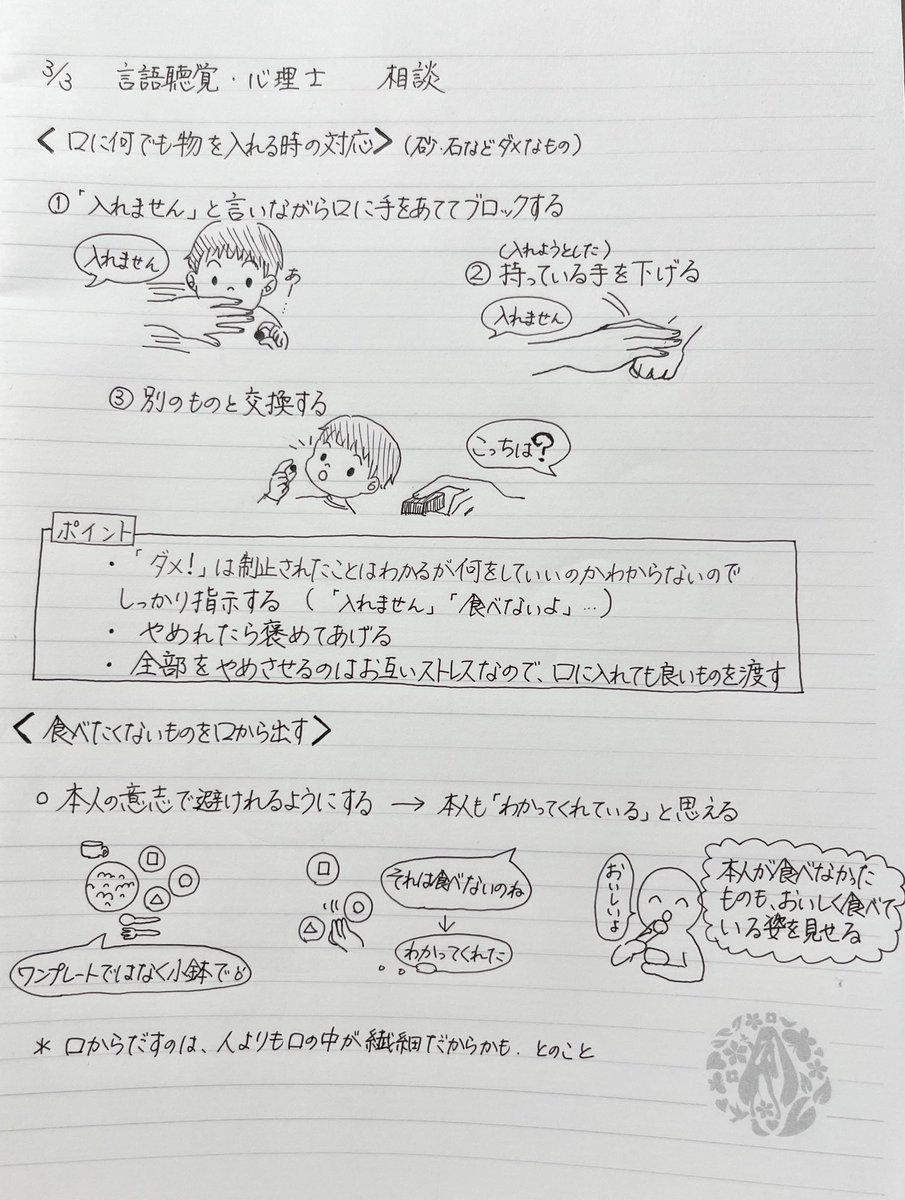 3/3 言語聴覚・心理士 相談
<口に何でも物を入れる時の対応>(砂・石などダメなもの)
①「入れません」と言いながら口に手をあててブロックする
入れません
あー…
(入れようとした)
②持っている手を下げる
入れません
③別のものと交換する
こっちは?
ポイント
・「ダメ!」は制止されたことはわかるが何をしていいのかわからないので
しっかり指示する(「入れません」「食べないよ」…)
・やめれたら褒めてあげる
・全部をやめさせるのはお互いストレスなので、口に入れても良いものを渡す
<食べたくないものを口から出す>
○本人の意志で避けれるようにする→本人も「わかってくれている」と思える
ワンプレートではなく小鉢で
それは食べないのね
↓
わかってくれた
おいしいよ
本人が食べなかった
ものも、おいしく食べて
いる姿を見せる
*口からだすのは、人よりも口の中が繊細だからかも. とのこと